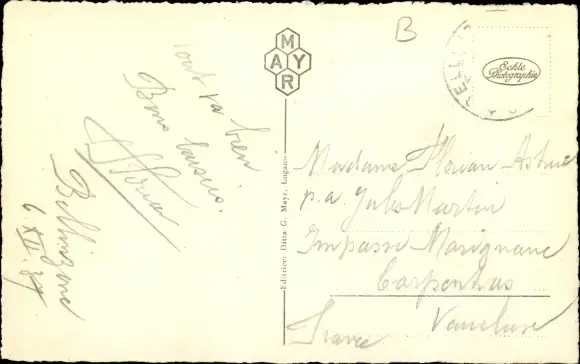 tout va bien
Bons baisers.
Florian
Bellinzone
6. XII. 37
MAYR
Editrice: Ditta G. Mayr, Lugano
B
Echte
Photographie
Madame Florian
p.a. Jules Martin
Impasse Marignane
Carpentras
Vaucluse
France